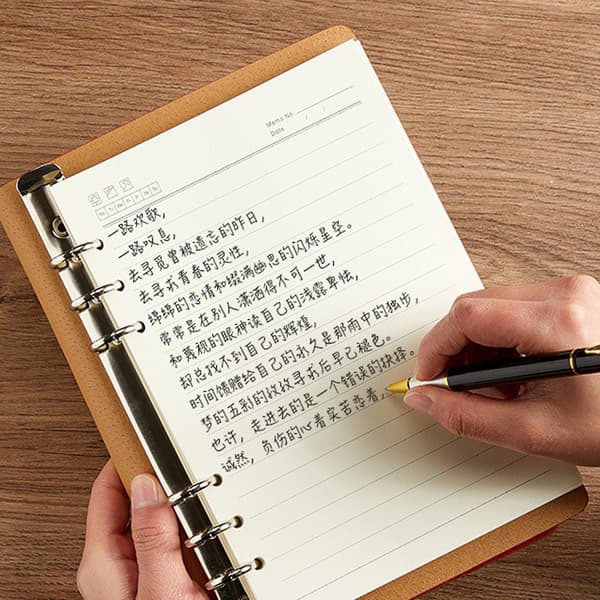 Memo No.
Date / /
Mo Tu We Th Fr Sa Su
一路欢歌,
一路叹息,
去寻觅曾被遗忘的昨日,
去寻求青春的灵性,
绵绵的恋情和缀满幽思的闪烁星空。
常常是在别人潇洒得不可一世,
和蔑视的眼神读自己的浅露卑怯,
却总找不到自己的辉煌,
时间馈赠给自己的永久是那雨中的独步,
梦的五彩的孜孜寻求后早已褪色。
也许,走进去的是一个错误的抉择。
诚然,负伤的心着实苦恋着,